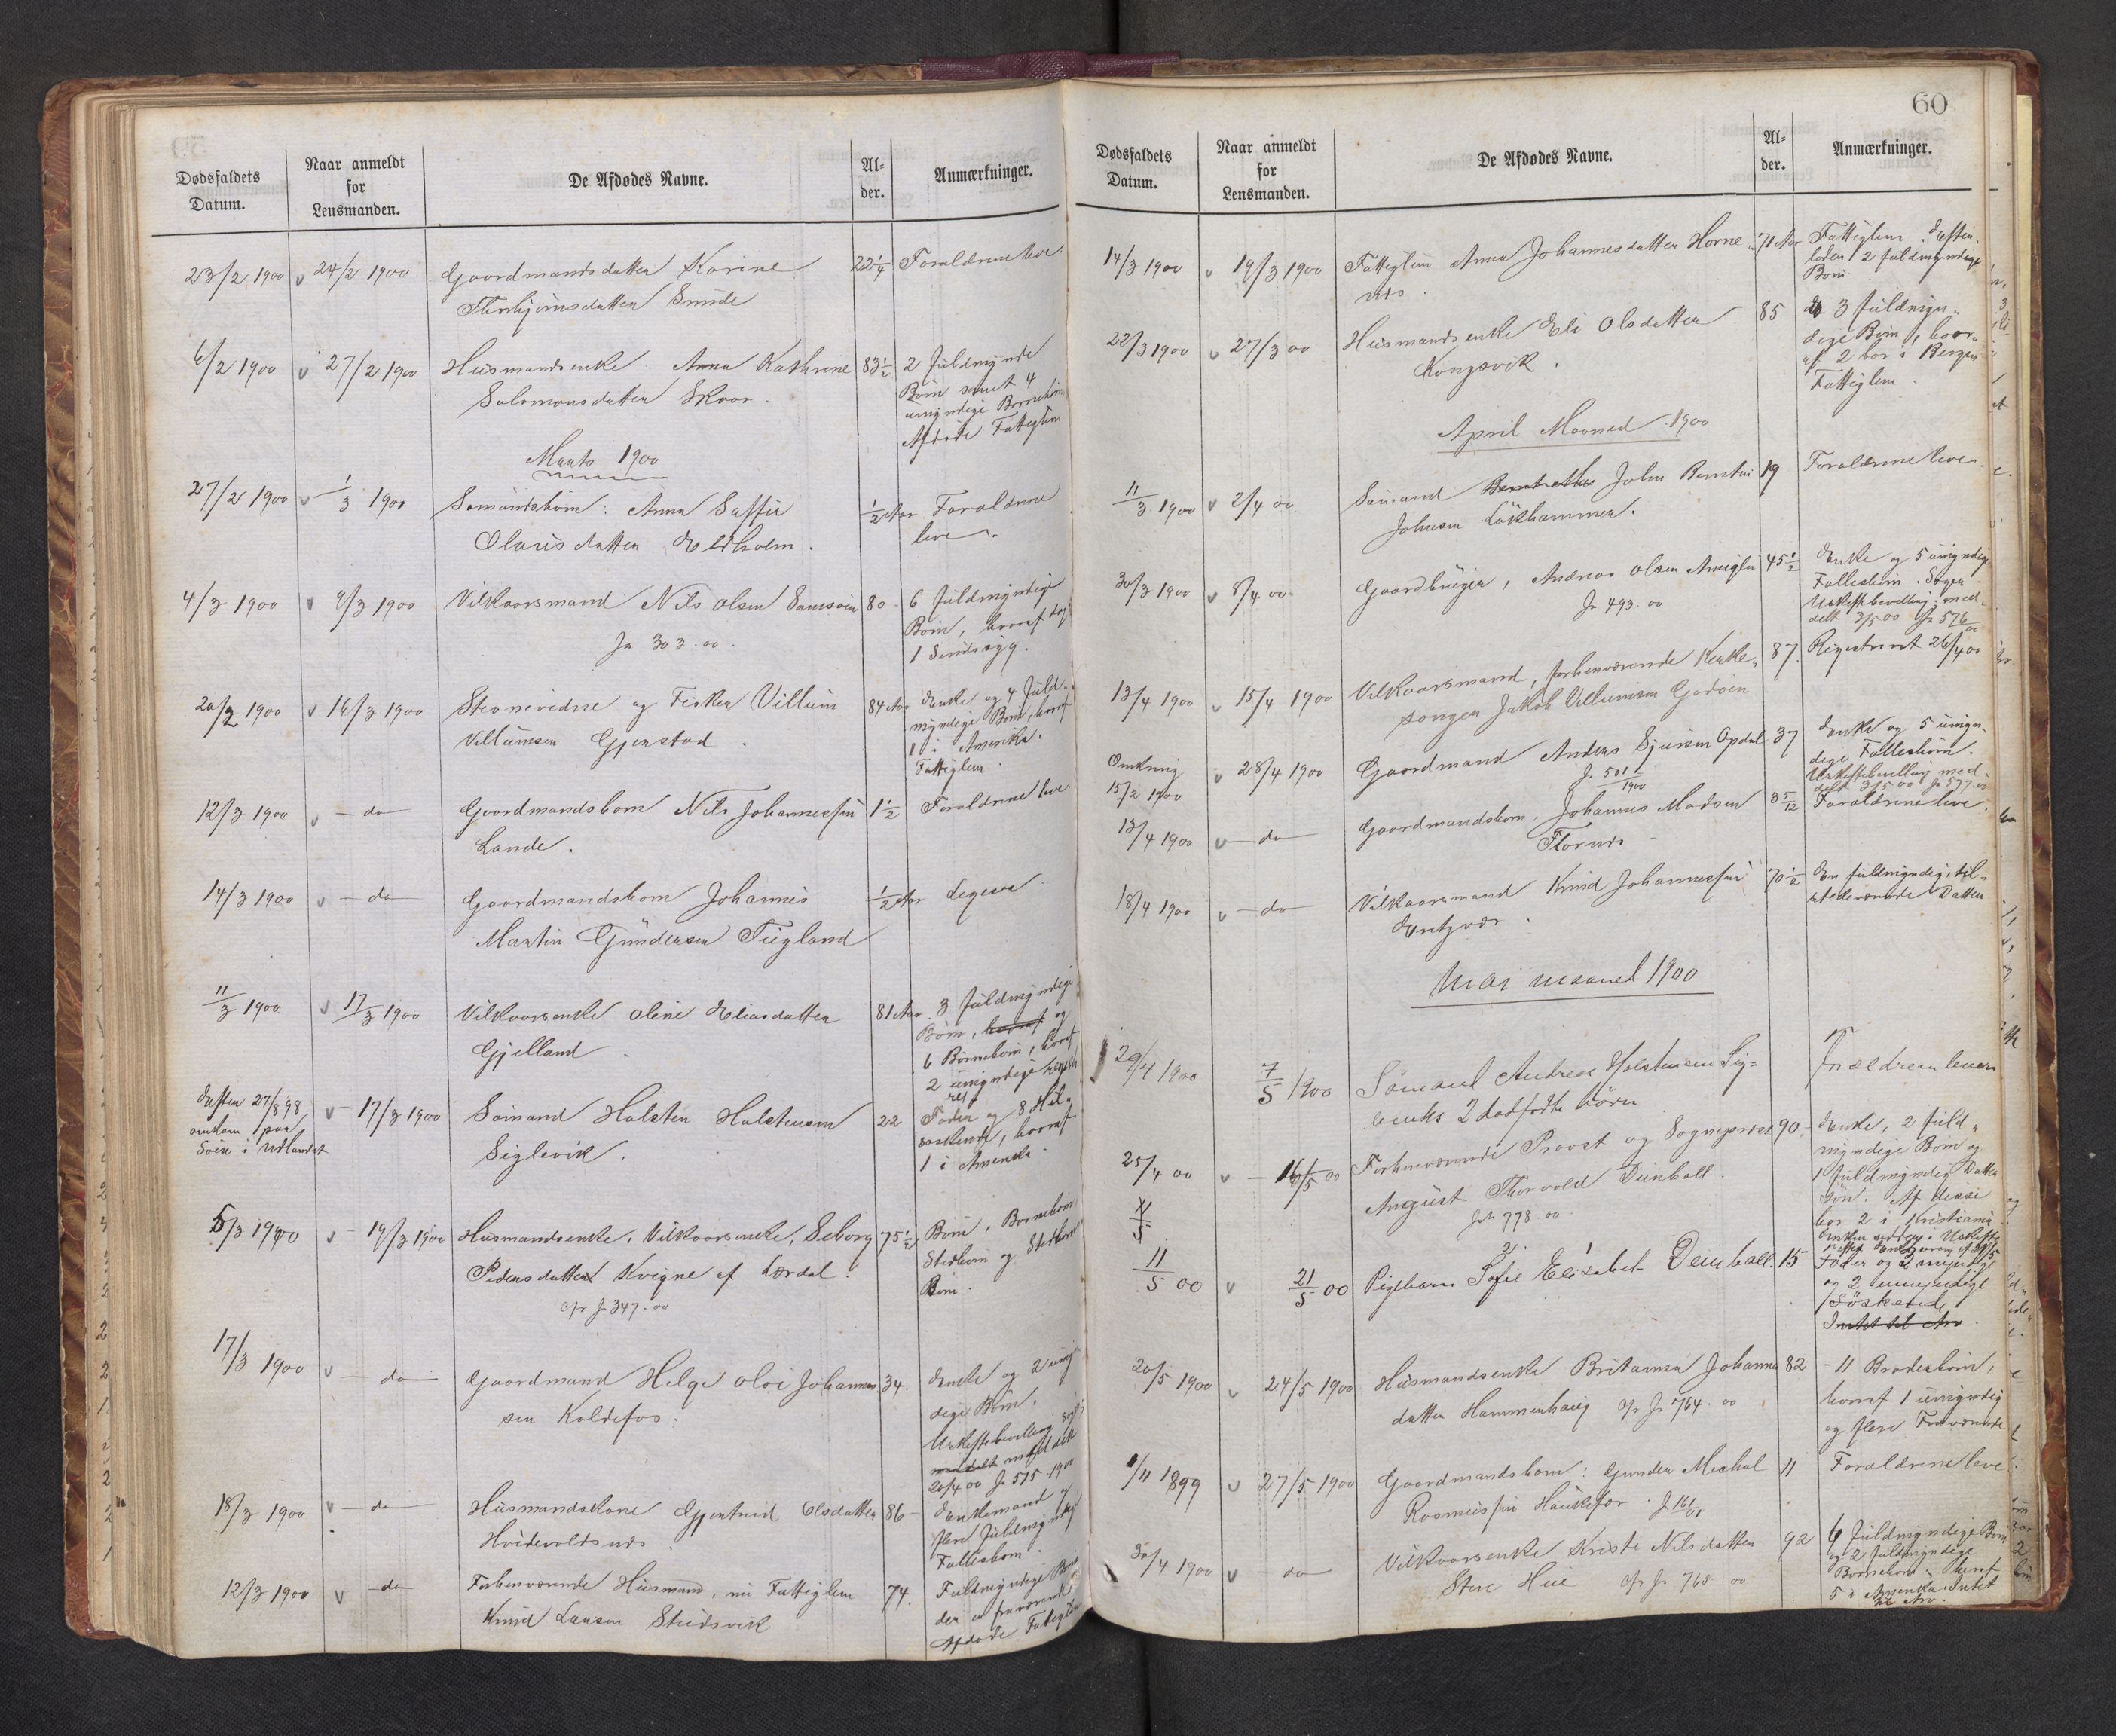 Dødsfaldets
Datum.
Naar anmeldt
for
Lensmanden.
De Afdødes Navne.
Al-
der.
Anmærkninger.
23/2 1900 v 24/2 1900 Gaardmandsdatter Karine 22 1/4 Forældrene leve.
Thorbjørnsdatter Sunde
6/2 1900 v 27/2 1900 Husmandsenke Anna Kathrine 83 1/2 2 Fuldmynde
Salomonsdatter Skaar.
Børn samt 4
umyndige Børnebørn
Afdøde Fattiglem
Marts 1900
27/2 1900 v 1/3 1900 Sømandsbarn: Anna Saffie 1/2 Aar Forældrene
Olausdatter Eldholm. leve.
4/3 1900 v 9/3 1900 Vilkaarsmand Nils Olsen Samsøen 80 6 fuldmyndige
Jr 303.00.
Børn, hvoraf dog
1 Sindssyg.
20/2 1900 v 16/3 1900 og Fisker Villum 84 Aar Enke og 4 fuld-
Villumsen Gjerstad.
myndige Børn, hvoraf
1 i Amerika.
Fattiglem.
12/3 1900 v - do Gaardmandsbarn Nils Johannessen 1 1/2 Forældrene leve
Lande.
14/3 1900 v - do Gaardmandsbarn Johannes 1/2 Aar Ligesaa
Martin Gundersen Tugland
11/3 1900 v 17/3 1900 Vilkaarsenke Oline Eliasdatter 81 Aar. 3 fuldmyndige
Gjelland
Børn, hvoraf og
6 Børnebørn, hvoraf
2 umyndige
Efter 27/8 98
omkom paa
Søen i Udlandet
v - 17/3 1900 Sømand Halsten Halstensen 22 Fader og 8 Hel-
Siglevik.
søskende, hvoraf
1 i Amerika.
5/3 1900 v - 19/3 1900 Husmandsenke, Vilkaarsenke, Seborg 75 1/2 Børn, Børnebørn
Pedersdatter Kvigne af Lærdal. Stedbørn og Stedbørns
cfr Jr 347.00 Børn.
17/3 1900 v - do Gaardmand Helge Olai Johannes 34. Enke og 2 umyn
sen Koldefos.
dige Børn.
Uskiftebevilling
meddelt
20/4 00 Jr 515.1900
18/3 1900 v - do Husmandskone Gjertrud Olsdatter 86 - Enkemand og
Hvidevoldsnes
flere fuldmyndige
Fællesbørn.
12/3 1900 v - do Forhenværende Husmand, nu Fattiglem 74. Fuldmyndige Børn
Knud Larsen Stuedsvik
der er fraværende
Afdøde Fattiglem
60
Dødsfaldets
Datum.
Naar anmeldt
for
Lensmanden.
De Afdødes Navne.
Al-
der.
Anmærkninger.
14/3 1900 v 19/3 1900 Fattiglem Anna Johannesdatter Horne 71 Aar Fattiglem. Efter-
nes.
lader 2 fuldmyndige
Børn
22/3 1900 v 27/3 00 Husmandsenke Eli Olsdatter 85 3 fuldmyn-
Kongsvik.
dige Børn, hvor-
af 2 bor i Bergen
Fattiglem.
April Maaned 1900
11/3 1900 v 2/4 00 Sømand John Berntin 19 Forældrene leve.
Johnsen Løkhammer.
30/3 1900 v 8/4 00 Gaardbruger, Andreas Olsen 45 1/2 Enke og 5 umyndige
Jr 493.00
Fællesbørn. Søger
Uskiftebevilling; med-
delt 3/5 00 Jr 576/00
13/4 1900 v 15/4 1900 Vilkaarsmand, forhenværende Kirke- 87. Registreret 26/4 00
sanger Jakob Villumsen Godøen
Omkring
15/2 1900
v 28/4 1900 Gaardmand Anders Sjursen Opdal 37 Enke og 5 umyn-
Jr 501/1900
dige Fællesbørn.
Uskiftebevilling med-
delt 3/5 00 Jr 577.00
13/4 1900 v - do Gaardmandsbarn, Johannes Madsen 3 5/12 Forældrene leve.
Flornes
18/4 1900 v - do Vilkaarsmand Knud Johannessen 70 1/2 En fuldmyndig, til-
stedeværende Datter.
Mai maaned 1900
29/4 1900 7/5 1900 Sømand Andreas Halstensen Sig- Forældrene lever
leviks 2 dødfødte børn
25/4 00 v - 16/5 00 Forhenværende Provst og Sogneprest 90. Enke, 2 fuld-
August Thorvald Deinboll.
Jr 778.00
myndige Børn og
1 fuldmyndig Datter
søn. Af disse
bor 2 i Kristiania
11/5 00 v 21/5 00 Pigebarn Sofie Elisabet Deinboll. 15 Fader og 2 myndige
og 2 umyndige
Søskende
Intet til Arv.
20/5 1900 v 24/5 1900 Husmandsenke Britamia Johannes 82 - 11 Broderbørn,
datter Hammerhaug cfr Jr 764.00
hvoraf 1 umyndig
og flere Fraværende
1/11 1899 v 27/5 1900 Gaardmandsbarn: Gunder Mechal 11 Forældrene leve
Rasmussen Haukefær. J 16/01
30/4 1900 v - do Vilkaarsenke Kristi Nilsdatter 92 6 fuldmyndige Børn
Store Hue cfr Jr 765.00
og 2 fuldmyndige
Børnebørn. Heraf
5 i Amerika. Intet
til Arv.